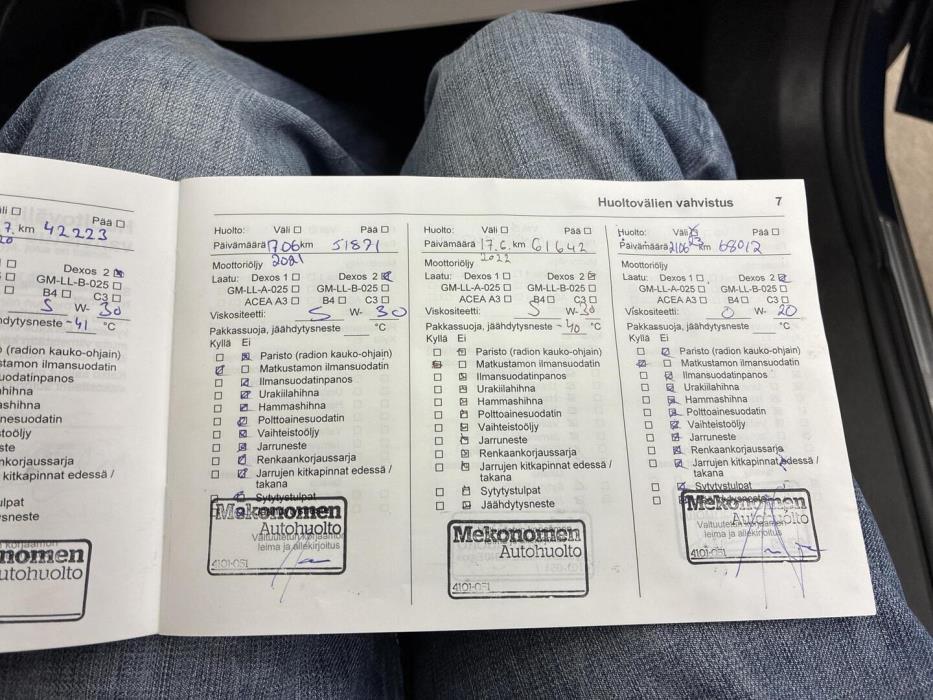 Huoltovälien vahvistus 7
li ☐ Pää ☐
7. km 42223
20
☐ Dexos 2 ☒
☐ GM-LL-B-025 ☐
☐ B4 ☐ C3 ☐
5 W- 30
hdytysneste -41 °C
(radion kauko-ohjain)
stamon ilmansuodatin
uodatinpanos
hihna
ashihna
nesuodatin
toöljy
ste
nkorjaussarja
kitkapinnat edessä /
ulpat
sneste
nomen
utohuolto
Huolto: Väli ☐ Pää ☐
Päivämäärä 1706 km 51871
2021
Moottoriöljy
Laatu: Dexos 1 ☐ Dexos 2 ☒
GM-LL-A-025 ☐ GM-LL-B-025 ☐
ACEA A3 ☐ B4 ☐ C3 ☐
Viskositeetti: 5 W- 30
Pakkassuoja, jäähdytysneste °C
Kyllä Ei
☐ ☒ Paristo (radion kauko-ohjain)
☒ ☐ Matkustamon ilmansuodatin
☐ ☒ Ilmansuodatinpanos
☐ ☒ Urakiilahihna
☐ ☒ Hammashihna
☐ ☒ Polttoainesuodatin
☐ ☒ Vaihteistoöljy
☐ ☒ Jarruneste
☐ ☒ Renkaankorjaussarja
☐ ☒ Jarrujen kitkapinnat edessä /
takana
☐ ☒ Sytytystulpat
Mekonomen
Autohuolto
Valtuutetun korjaamon
leima ja allekirjoitus
4101-051
Huolto: Väli ☐ Pää ☐
Päivämäärä 17.6. km 61642
2022
Moottoriöljy
Laatu: Dexos 1 ☐ Dexos 2 ☒
GM-LL-A-025 ☐ GM-LL-B-025 ☐
ACEA A3 ☐ B4 ☐ C3 ☐
Viskositeetti: 5 W- 30
Pakkassuoja, jäähdytysneste -40 °C
Kyllä Ei
☐ ☒ Paristo (radion kauko-ohjain)
☒ ☐ Matkustamon ilmansuodatin
☐ ☒ Ilmansuodatinpanos
☐ ☒ Urakiilahihna
☐ ☒ Hammashihna
☐ ☒ Polttoainesuodatin
☐ ☒ Vaihteistoöljy
☐ ☒ Jarruneste
☐ ☒ Renkaankorjaussarja
☐ ☒ Jarrujen kitkapinnat edessä /
takana
☐ ☒ Sytytystulpat
☐ ☒ Jäähdytysneste
Mekonomen
Autohuolto
4101-051
Huolto: Väli ☒ Pää ☐
Päivämäärä 2106 23 km 68012
Moottoriöljy
Laatu: Dexos 1 ☐ Dexos 2 ☒
GM-LL-A-025 ☐ GM-LL-B-025 ☐
ACEA A3 ☐ B4 ☐ C3 ☐
Viskositeetti: 0 W- 20
Pakkassuoja, jäähdytysneste °C
Kyllä Ei
☐ ☒ Paristo (radion kauko-ohjain)
☒ ☐ Matkustamon ilmansuodatin
☐ ☒ Ilmansuodatinpanos
☐ ☒ Urakiilahihna
☐ ☒ Hammashihna
☐ ☒ Polttoainesuodatin
☐ ☒ Vaihteistoöljy
☐ ☒ Jarruneste
☐ ☒ Renkaankorjaussarja
☐ ☒ Jarrujen kitkapinnat edessä /
takana
☐ ☒ Sytytystulpat
Mekonomen
Autohuolto
Valtuutetun korjaamon
leima ja allekirjoitus
4101-051